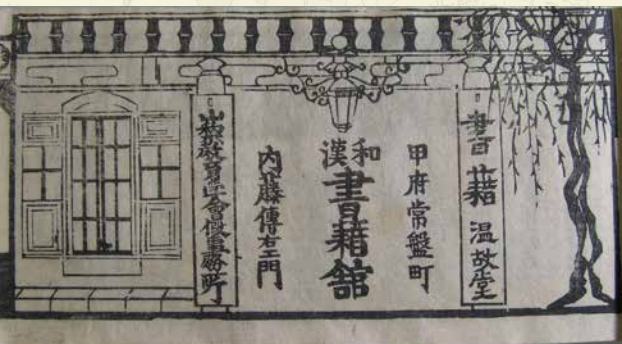 書籍 温故堂
甲府常盤町
和漢
書籍舘
内藤傳右エ門
山梨教育協會假事務所